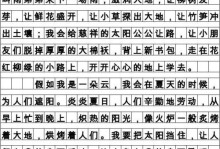 芽，让鲜花盛开，让小草探出大地，让竹笋冲
出土壤；我会给慈祥的太阳公公让路，让小朋
友们脱掉厚厚的大棉袄，背上新书包，走在花
红柳绿的小路上，开开心心的地上学去。
假如我是一朵云，我会在夏天的时候，
为人们遮阳。炎炎夏日，人们辛勤地劳动，从
早上忙到晚上，炽热的阳光，像火炉一般炙烤
着大地，烘烤着人们。我要把太阳挡住，让人